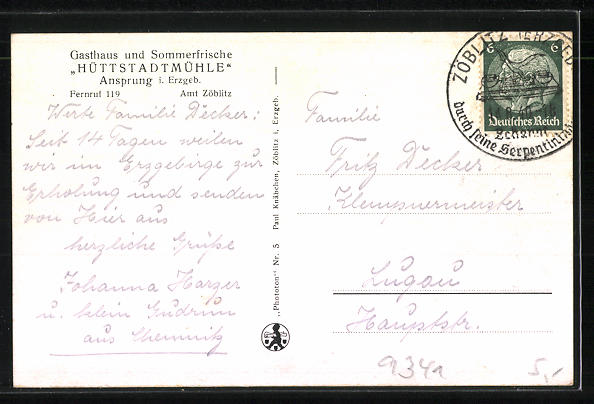 Gasthaus und Sommerfrische
„HÜTTSTADTMÜHLE“
Ansprung i. Erzgeb.
Fernruf 119 Amt Zöblitz
Werte Familie Decker:
Seit 14 Tagen weilen
wir im Erzgebirge zur
Erholung und senden
von Hier aus
herzliche Grüße
Johanna Harzer
u. klein Gudrun
aus Chemnitz
„Phototon“ Nr. 5 Paul Knäbchen, Zöblitz i. Erzgeb.
Familie
Fritz Decker
Klempnermeister
Lugau
Hauptstr.
6 6
Deutsches Reich
ZÖBLITZ (ERZGEB
durch seine Serpentin
9341
5,-